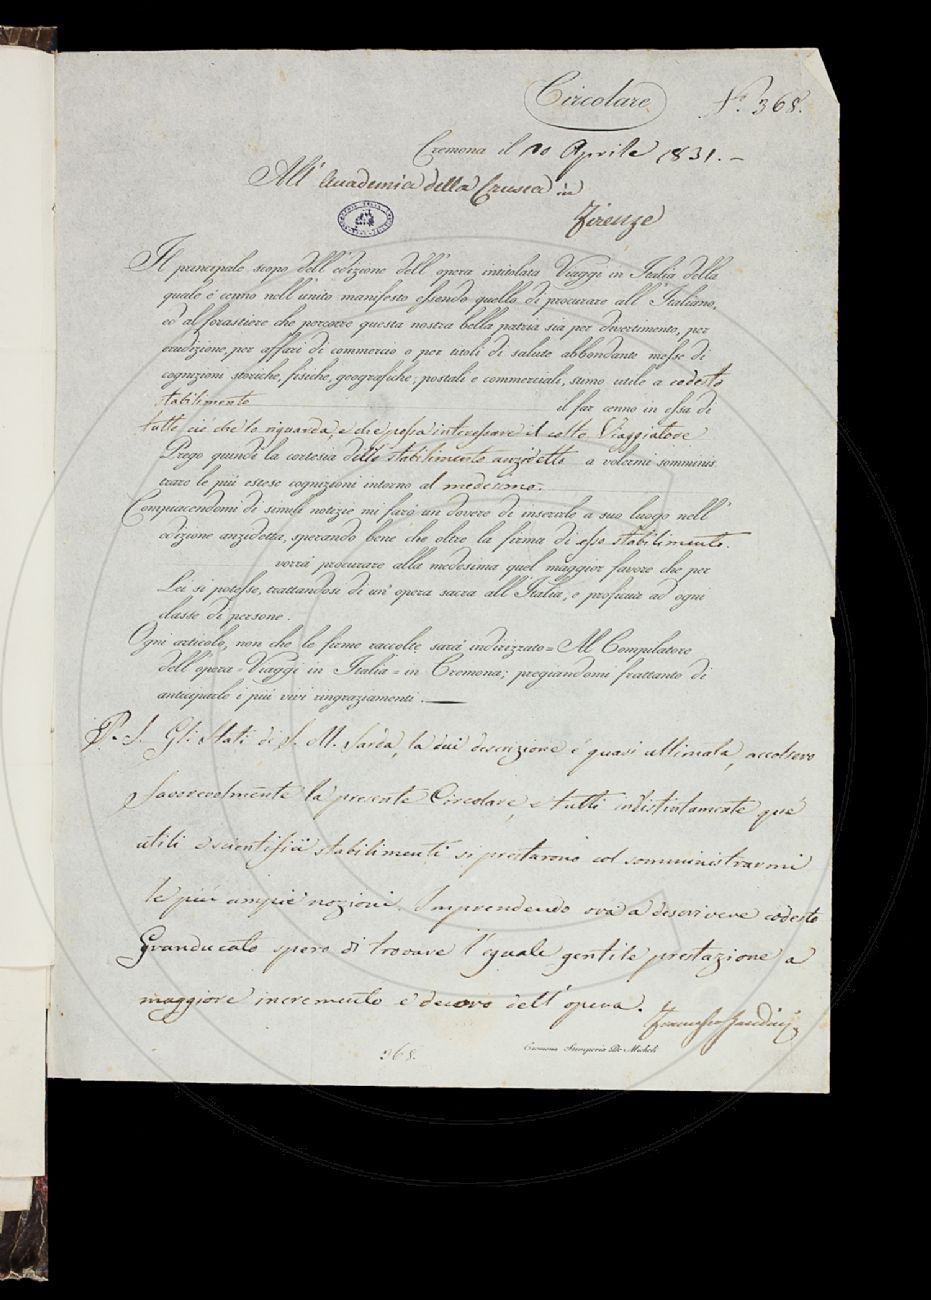 Circolare
N.º 368.
Cremona il 10 Aprile 1831. -
All' Accademia della Crusca in
Firenze
Il principale scopo dell' edizione dell' opera intitolata Viaggi in Italia della
quale è cenno nell' unito manifesto essendo quello di procurare all' Italiano,
ed al forastiere che percorre questa nostra bella patria sia per divertimento, per
erudizione, per affari di commercio o per titoli di salute abbondante messe di
cognizioni storiche, fisiche, geografiche, postali e commerciali, sumo utile a codesto
stabilimento il far cenno in essa di
tutto ciò che lo riguarda, e che possa interessare il colto Viaggiatore
Prego quindi la cortesia dello stabilimento anzidetto a volermi sommini
trare le più estese cognizioni intorno al medesimo.
Compiacendomi di simili notizie mi farò un dovere di inserirle a suo luogo nell'
edizione anzidetta, sperando bene che oltre la firma di esso stabilimento.
vorrà procurare alla medesima quel maggior favore che per
Lei si potesse, trattandosi di un' opera sacra all' Italia, e proficua ad ogni
classe di persone.
Ogni articolo, non che le firme raccolte sarà indirizzato = Al Compilatore
dell' opera = Viaggi in Italia = in Cremona; pregiandomi frattanto di
anticiparle i più vivi ringraziamenti.
P. S. Gli Stati di S. M. Sarda, la cui descrizione è quasi ultimata, accolsero
favorevolmente la presente Circolare, e tutti indistintamente que'
utili e scientifici stabilimenti si prestarono col somministrarmi
le più ampie nozioni. Imprendendo ora a descrivere codesto
Granducato spero di trovare l' eguale gentile prestazione a
maggiore incremento e decoro dell' opera.
Francesco
368.
Cremona Stamperia De-Micheli